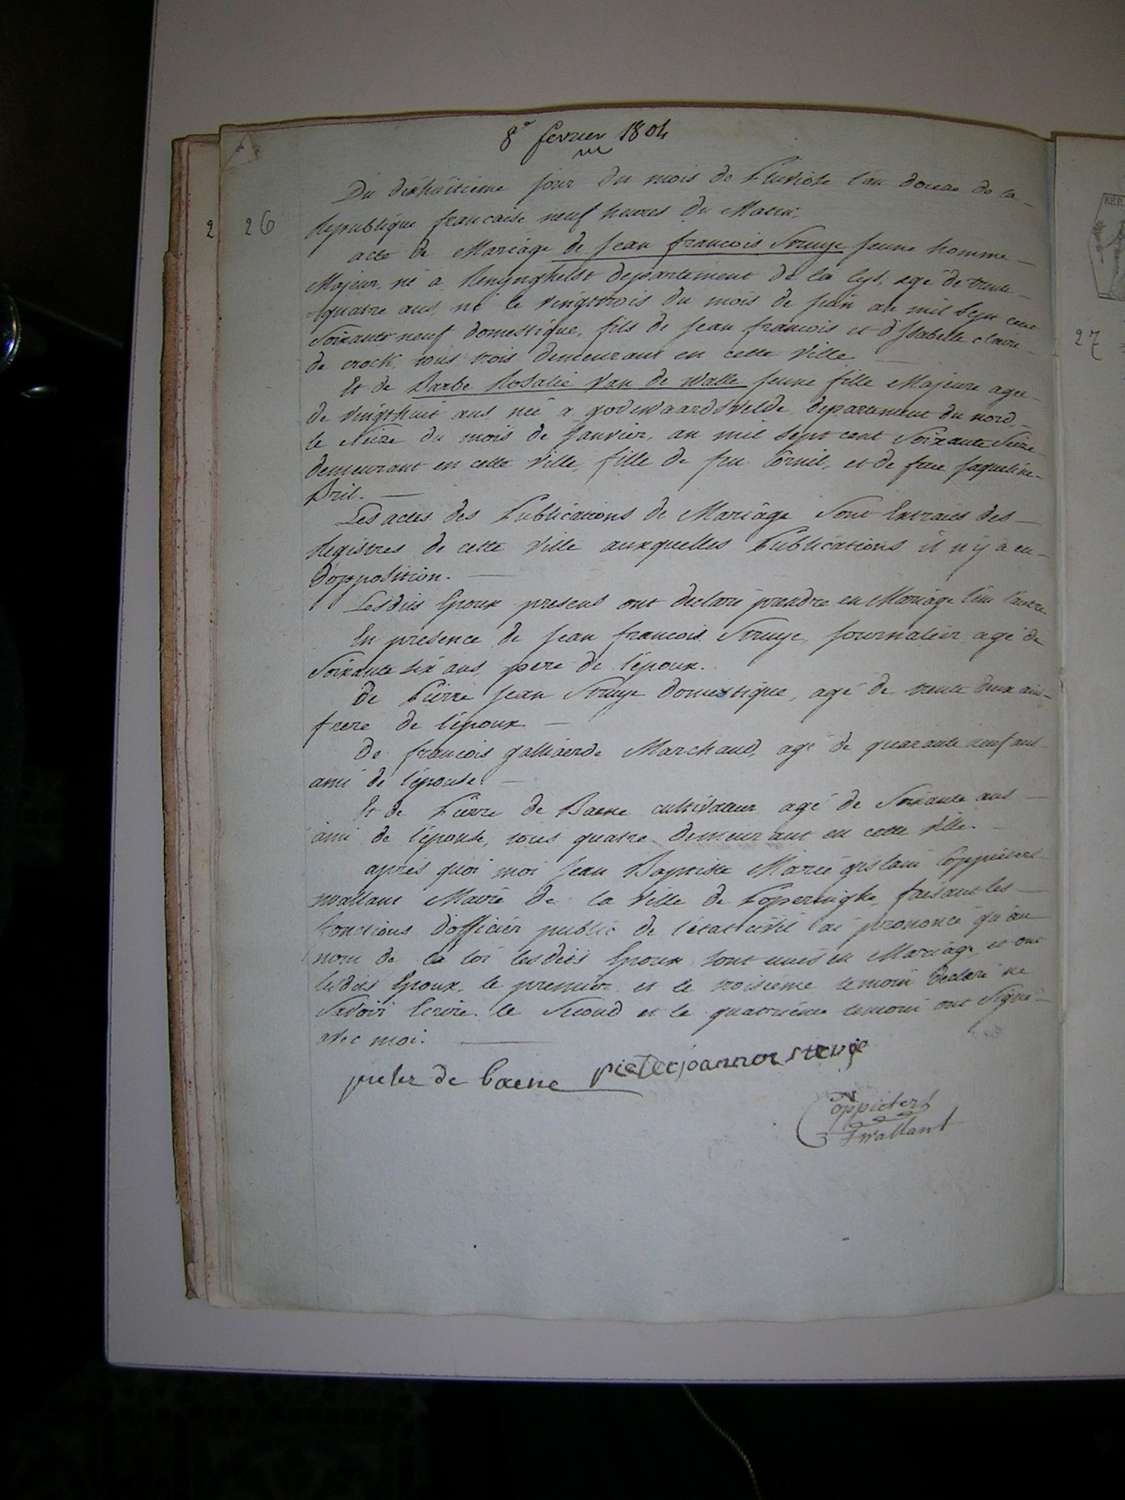 8e fevrier 1804
26
Du dixhuitieme jour du mois de Pluviose l'an douze de la
Republique francaise neuf heures du Matin,
acte de Mariage de Jean francois Struye jeune homme
Majeur, né a Reninghelst departement de la Lys, agé de trente
quatre ans, né le vingttrois du mois de juin an mil sept cent
soixante neuf domestique, fils de Jean francois et d'Isabelle claire
de crock, tous trois demeurant en cette ville
Et de Barbe Rosalie Van de Walle jeune fille Majeure agee
de vingthuit ans née a godewaardsvelde, departement du nord,
le seize du mois de Janvier, an mil sept cent soixante seize
demeurant en cette ville, fille de feu Cornil, et de feue Jaqueline
Bril.
Les actes des Publications de Mariage sont Extraits des
Registres de cette ville auxquelles Publications il n'y a eu
d'opposition.
Lesdits Epoux presens ont declaré prendre en Mariage l'un l'autre
En presence de Jean francois Struye, journalier agé de
soixante six ans, pere de l'époux.
De Pierre Jean Struye domestique, agé de trente deux ans
frere de l'époux
De francois galliaerde Marchand, agé de quarante neuf ans
ami de l'épouse.
Et de Pierre de Baene cultivateur agé de soixante ans
ami de l'épouse, tous quatre demeurant en cette ville.
après quoi moi Jean Baptiste Marie gislain Coppieters
wallant Maire de la ville de Poperinghe faisant les
fonctions d'officier public de l'état civil ai prononcé qu'au
nom de la loi lesdits Epoux sont unis en Mariage, et ont
lesdits Epoux, le premier et le troisieme temoin declaré ne
savoir Ecrire. le second et le quatrieme temoin ont signé
avec moi.
pieter de baene pieter joannes struije
Coppieters
wallant
2
27